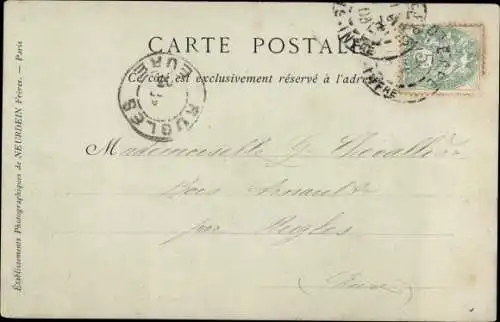 CARTE POSTALE
Ce côté est exclusivement réservé à l'adresse
RUGLES
EURE
Mademoiselle G. Chevallier
Bois Arnault
par Rugles
Eure
Etablissements Photographiques de NEURDEIN Frères. - Paris